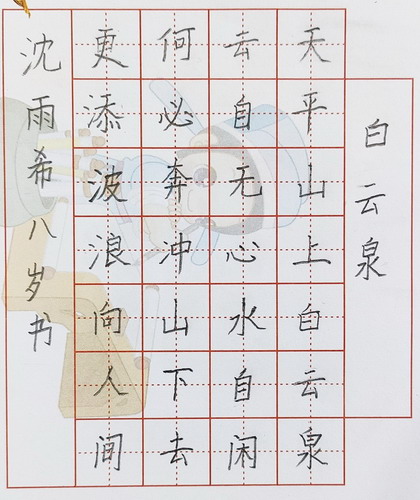 白云泉
天平山上白云泉
云自无心水自闲
何必奔冲山下去
更添波浪向人间
沈雨希八岁书